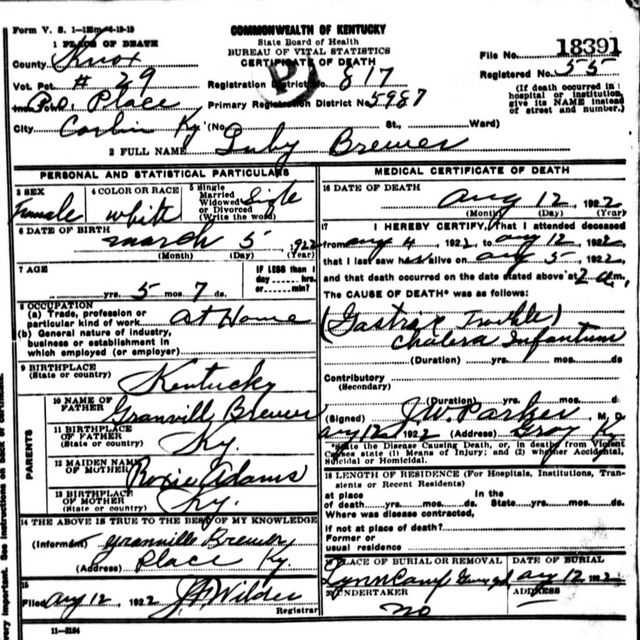 Form V. S. 1—125m—6-19-19
COMMONWEALTH OF KENTUCKY
State Board of Health
BUREAU OF VITAL STATISTICS
CERTIFICATE OF DEATH
1 PLACE OF DEATH
County Knox
File No. 18391
Vot. Pct. # 29
Registration District No. 817
Registered No. 55
Inc. Place
Primary Registration District No. 5987
(If death occurred in a hospital or institution, give its NAME instead of street and number.)
City Corbin Ky (No. St., Ward)
2 FULL NAME Luby Brewer
PERSONAL AND STATISTICAL PARTICULARS
3 SEX Female
4 COLOR OR RACE white
5 Single Married Widowed or Divorced (Write the word) Sigle
6 DATE OF BIRTH March 5, 1922
(Month) (Day) (Year)
7 AGE
yrs. 5 mos. 7 ds.
IF LESS than 1 day hrs. or min.?
8 OCCUPATION
(a) Trade, profession or particular kind of work At Home
(b) General nature of industry, business or establishment in which employed (or employer)
9 BIRTHPLACE
(State or country) Kentucky
PARENTS
10 NAME OF FATHER Granvill Brewer
11 BIRTHPLACE OF FATHER
(State or country) Ky.
12 MAIDEN NAME OF MOTHER Roxie Adams
13 BIRTHPLACE OF MOTHER
(State or country) Ky.
14 THE ABOVE IS TRUE TO THE BEST OF MY KNOWLEDGE
(Informant) Granville Brewer
(Address) Place Ky.
15
Filed Aug 12, 1922 Wilder
Registrar
11—3184
MEDICAL CERTIFICATE OF DEATH
16 DATE OF DEATH Aug 12, 1922
(Month) (Day) (Year)
17 I HEREBY CERTIFY, That I attended deceased
from Aug 4, 1922, to Aug 12, 1922,
that I last saw h alive on Aug 5, 1922,
and that death occurred on the date stated above at 2 a.m.
The CAUSE OF DEATH* was as follows:
(Gastric Trouble)
Cholera Infantum
(Duration) yrs. mos. ds.
Contributory
(Secondary)
(Duration) yrs. mos. d:
(Signed) J.W. Parker, M. D.
Aug 12, 1922 (Address) Gray Ky
*State the Disease Causing Death, or, in deaths from Violent Causes state (1) Means of Injury; and (2) whether Accidental, Suicidal or Homicidal.
18 LENGTH OF RESIDENCE (For Hospitals, Institutions, Transients or Recent Residents)
at place of death yrs. mos. ds. In the State yrs. mos. ds.
Where was disease contracted,
if not at place of death?
Former or
usual residence
19 PLACE OF BURIAL OR REMOVAL
Lynn Camp
DATE OF BURIAL
Aug 12 1922
20 UNDERTAKER
no
ADDRESS